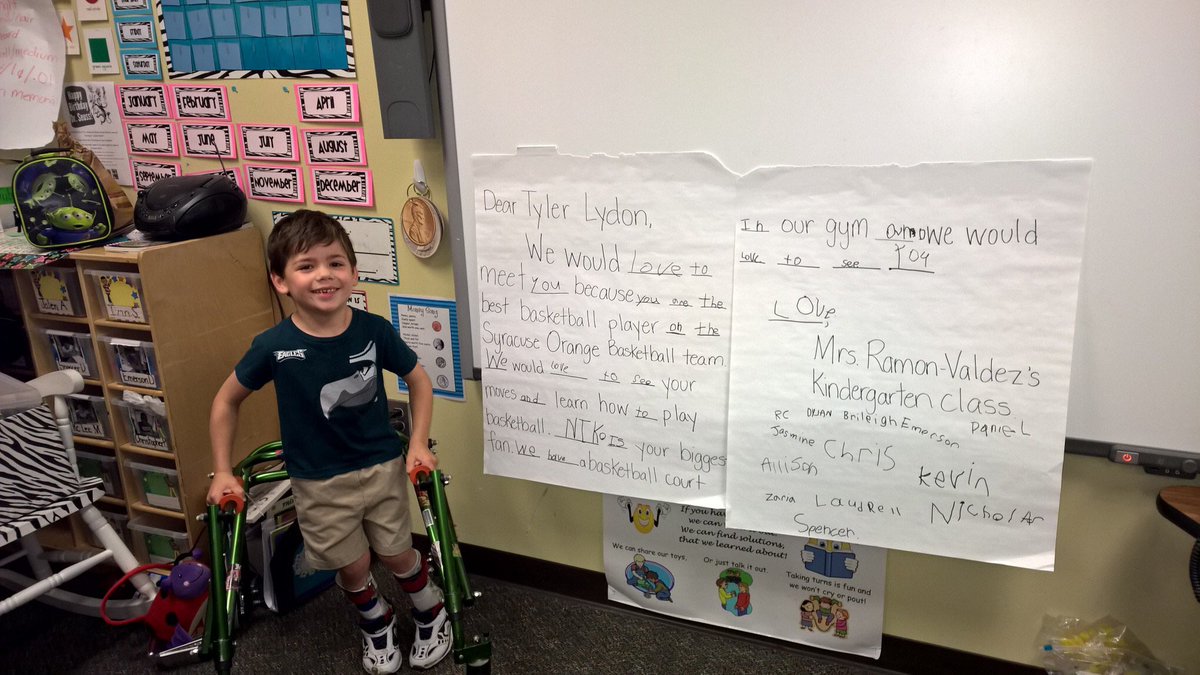 January
February
April
May
June
July
August
September
November
December
Happy
Birthday
Dr. Seuss!
Friday
Saturday
Iran S.
Emerson
Christopher
EAGLES
Money Song
Dear Tyler Lydon,
We would Love to
meet you because you are the
best basketball player on the
Syracuse Orange Basketball team.
We would love to see your
moves and learn how to play
basketball. NIKo is your bigges
fan. we have a basketball court
In our gym and we would
love to see you
LOve,
Mrs. Ramon-Valdez's
Kindergarten class
RC DYLAN Brileigh Emerson DanieL
Jasmine Chris
Allison Kevin
Zaria Laudrell Nicholas
Spencer
If you hav
we can
We can find solutions,
that we learned about!
We can share our toys,
Or just talk it out.
Taking turns is fun and
we won't cry or pout!